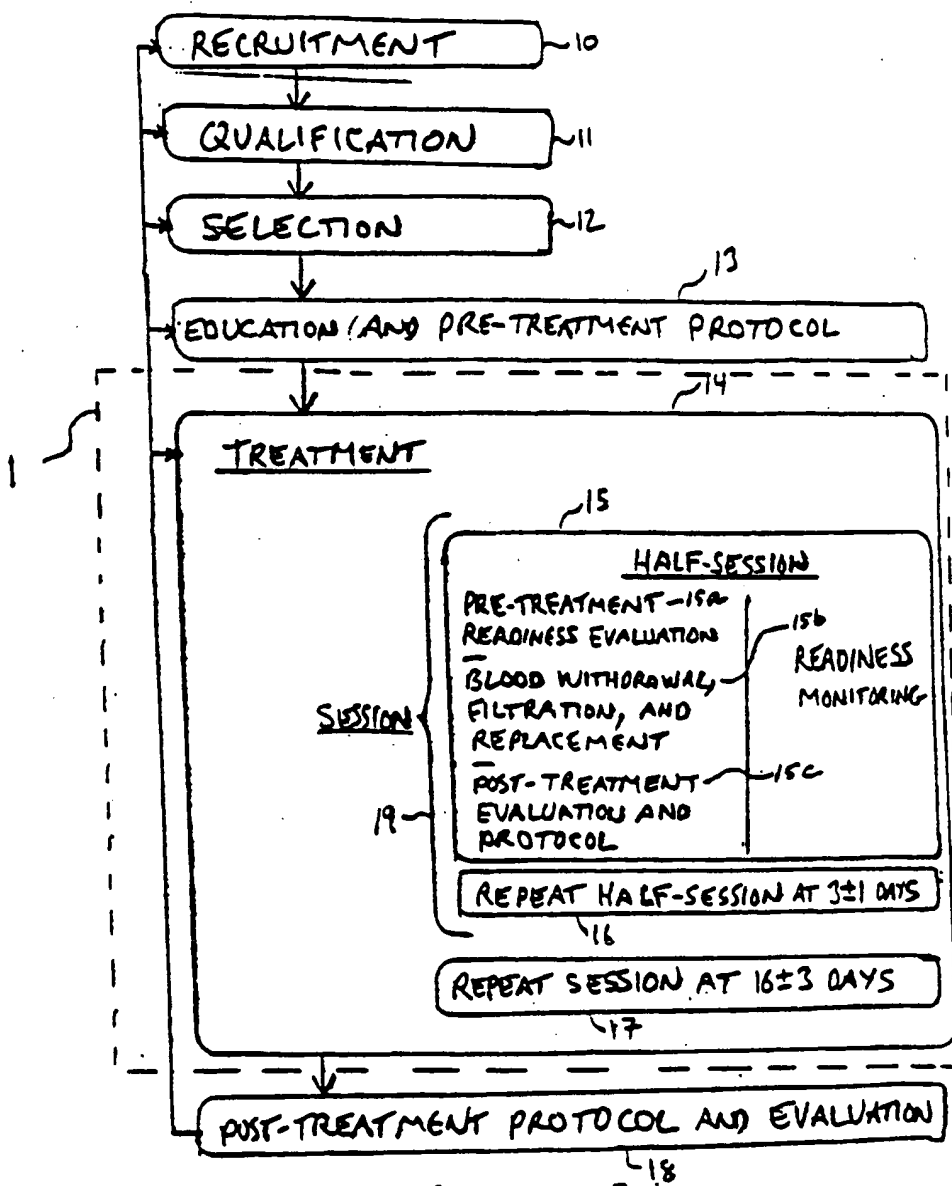 RECRUITMENT
10
QUALIFICATION
11
SELECTION
12
13
EDUCATION/AND PRE-TREATMENT PROTOCOL
14
1
TREATMENT
15
HALF-SESSION
PRE-TREATMENT 15a
READINESS EVALUATION
15b
BLOOD WITHDRAWAL,
FILTRATION, AND
REPLACEMENT
READINESS
MONITORING
SESSION
POST-TREATMENT 15c
EVALUATION AND
PROTOCOL
19
REPEAT HALF-SESSION AT 3±1 DAYS
16
REPEAT SESSION AT 16±3 DAYS
17
POST-TREATMENT PROTOCOL AND EVALUATION
18